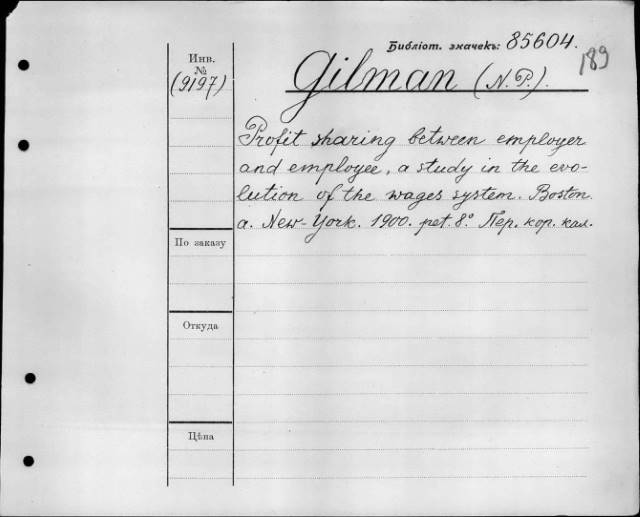 Библіот. значекъ: 85604.
189
Инв.
№
(9197)
Gilman (N. P.).
Profit sharing between employer
and employee, a study in the evo-
lution of the wages system. Boston.
a. New-York. 1900. pet. 8.° Пер. кор. кал.
По заказу
Откуда
Цѣна